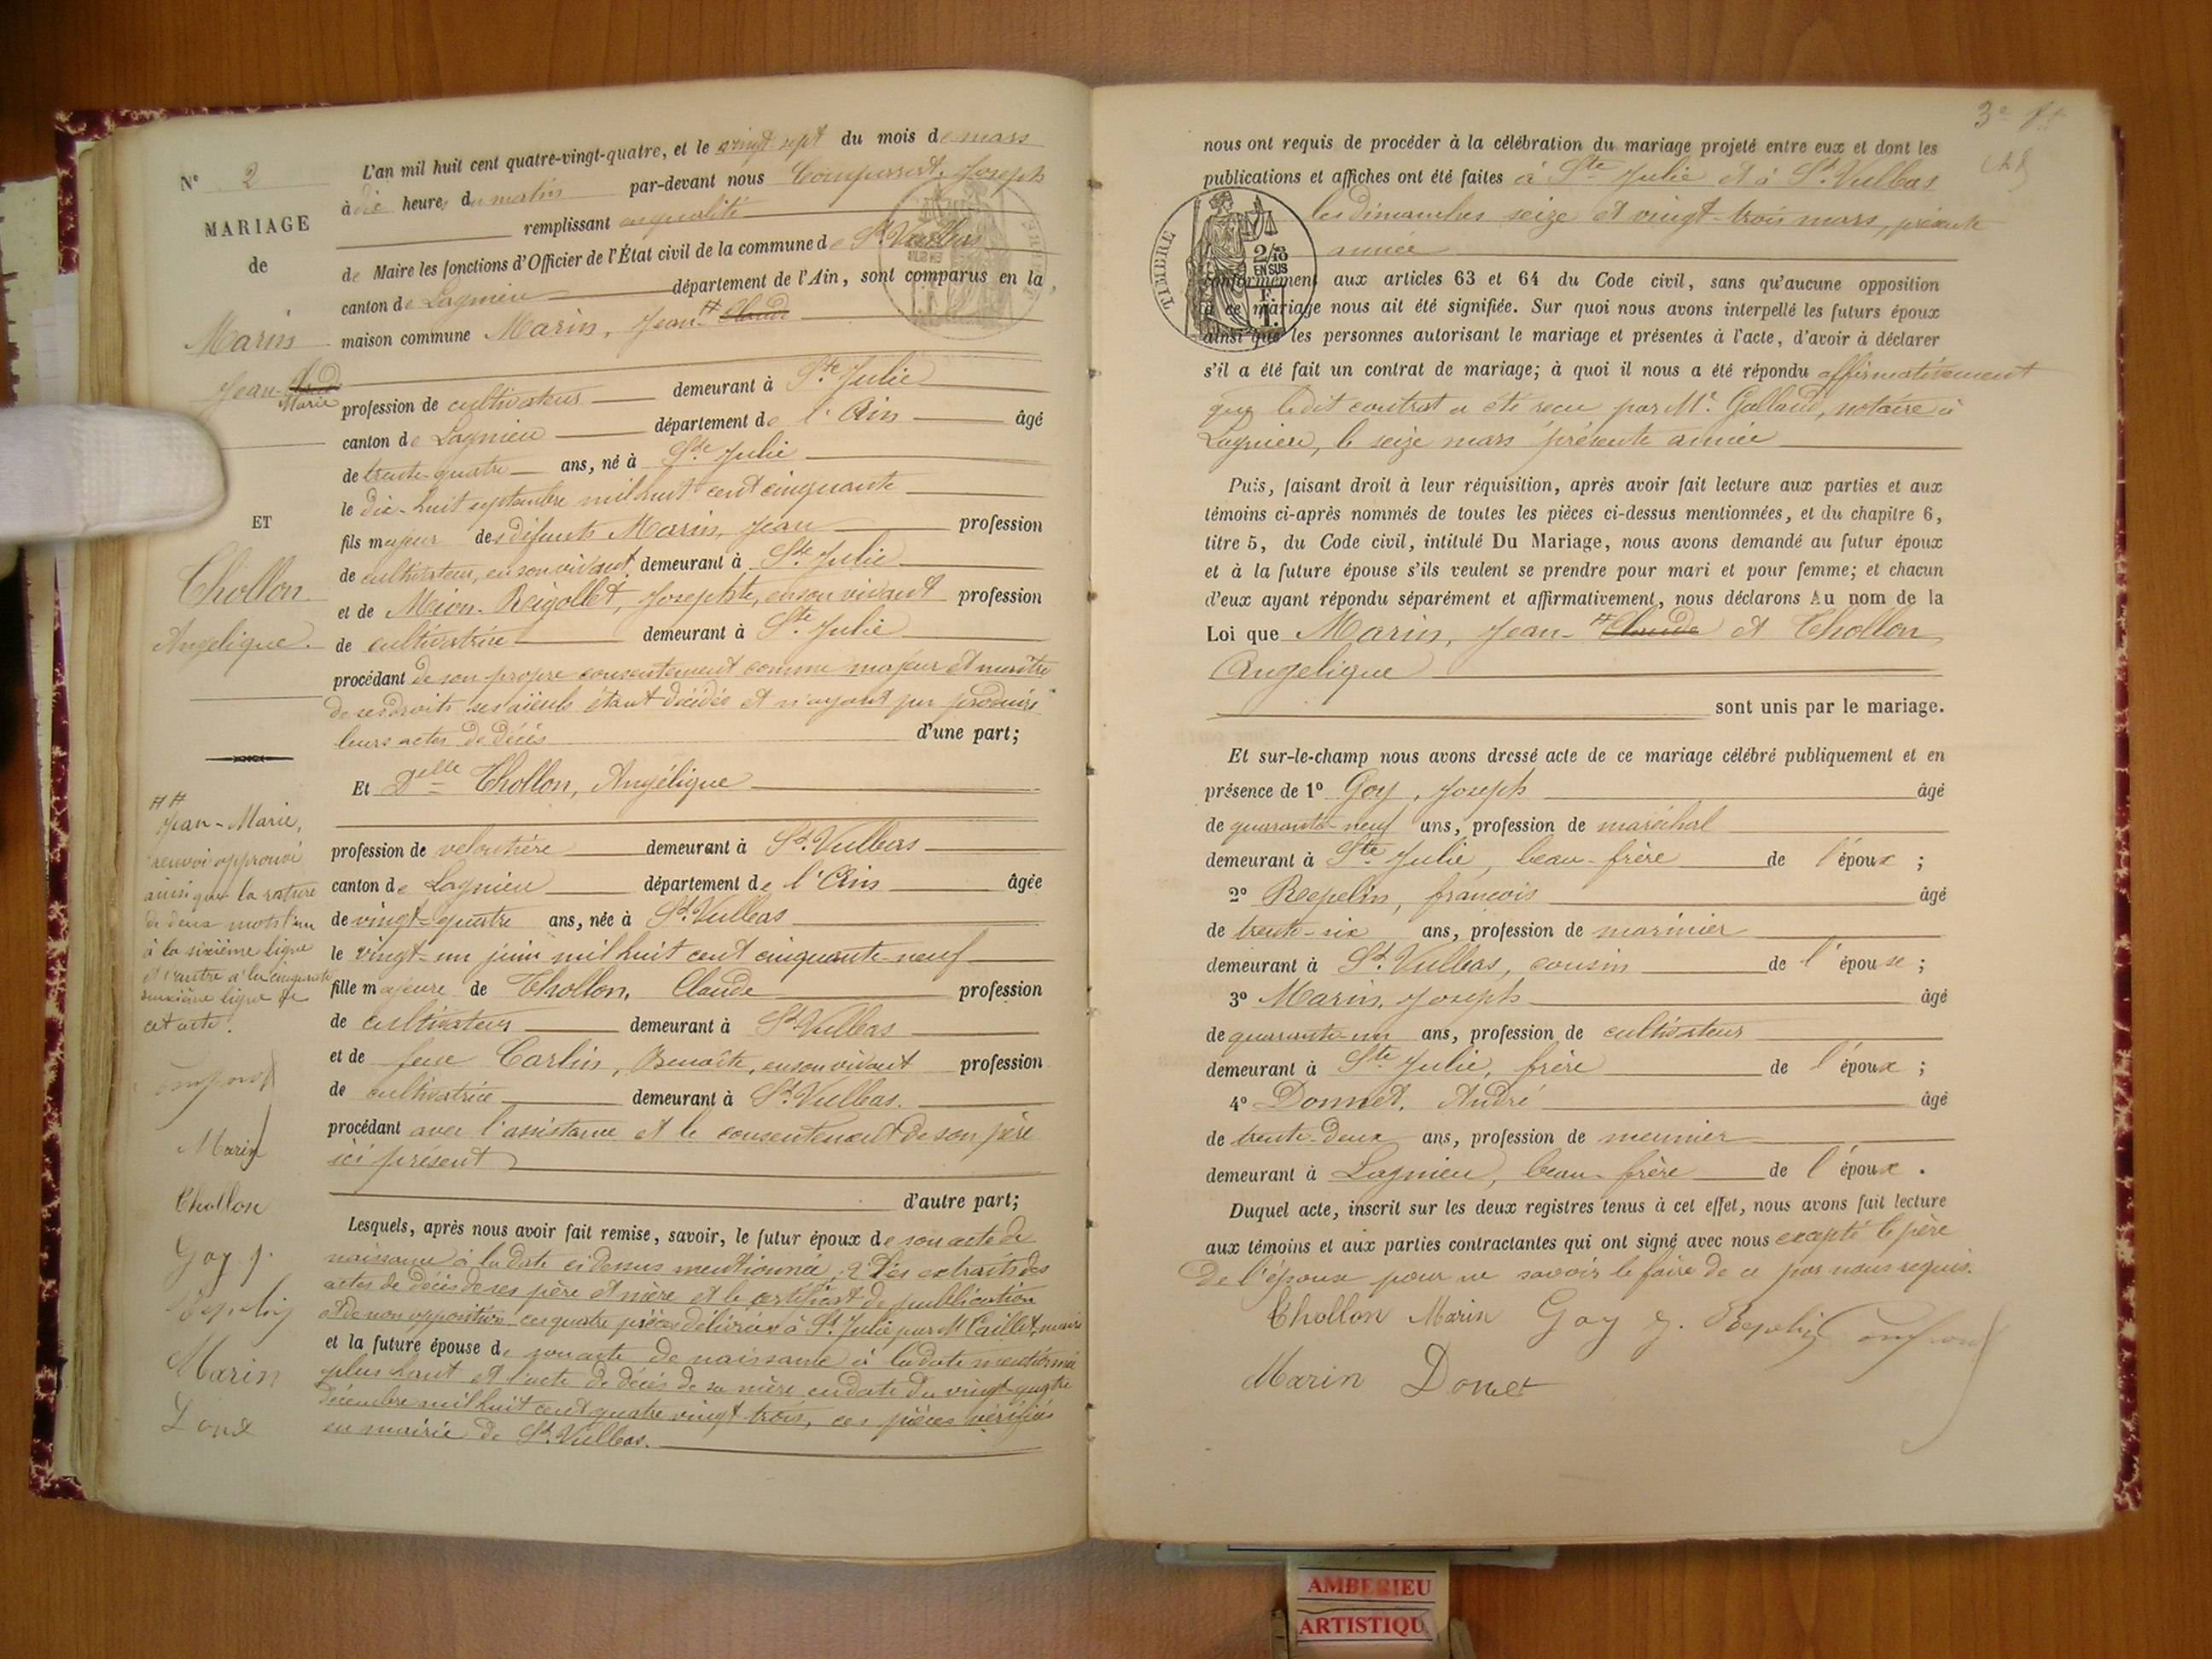 N° 2
MARIAGE
de
Marin
Jean-Claude
Marie
ET
Chollon
Angelique.
Jean-Marie,
renvoi approuvé
ainsi que la rature
de deux mots l'un
à la sixième ligne
et l'autre à la cinquante
deuxième ligne de
cet acte.
Marin
Chollon
Goy j.
Repelin
Marin
Donet
L'an mil huit cent quatre-vingt-quatre, et le vingt-sept du mois de mars
à dix heures du matin par-devant nous Compurret, Joseph
remplissant en qualité
de Maire les fonctions d'Officier de l'État civil de la commune de St Vulbas
canton de Lagnieu département de l'Ain, sont comparus en la
maison commune Marin, Jean-Claude
profession de cultivateur demeurant à Ste Julie
canton de Lagnieu département de l'Ain âgé
de trente-quatre ans, né à Ste Julie
le dix-huit septembre mil huit cent cinquante
fils majeur des défunts Marin, Jean profession
de cultivateur, en son vivant, demeurant à Ste Julie
et de Mion-Reigollet, Josephte, en son vivant profession
de cultivatrice demeurant à Ste Julie
procédant de son propre consentement comme majeur et maître
de ses droits ses aïeuls étant décédés et n'ayant pu produire
leurs actes de décès d'une part;
Et Delle Chollon, Angélique
profession de veloutière demeurant à St Vulbas
canton de Lagnieu département de l'Ain âgée
de vingt-quatre ans, née à St Vulbas
le vingt-un juin mil huit cent cinquante-neuf
fille majeure de Chollon, Claude profession
de cultivateur demeurant à St Vulbas
et de feue Carlin, Benoîte, en son vivant profession
de cultivatrice demeurant à St Vulbas.
procédant avec l'assistance et le consentement de son père
ici présent
d'autre part;
Lesquels, après nous avoir fait remise, savoir, le futur époux de son acte de
naissance à la date ci dessus mentionnée, 2° des extraits des
actes de décès de ses père et mère et le certificat de publication
et de non opposition ces quatre pièces délivrées à Ste Julie par Mr Caillet, maire
et la future épouse de son acte de naissance à la date mentionnée
plus haut et l'acte de décès de sa mère en date du vingt-quatre
décembre mil huit cent quatre vingt-trois, ces pièces vérifiées
en mairie de St Vulbas.
3e
nous ont requis de procéder à la célébration du mariage projeté entre eux et dont les
publications et affiches ont été faites à Ste Julie et à St Vulbas
les dimanches seize et vingt-trois mars, présente
année
TIMBRE
2/10
EN SUS
F.
1.
conformément aux articles 63 et 64 du Code civil, sans qu'aucune opposition
à ce mariage nous ait été signifiée. Sur quoi nous avons interpellé les futurs époux
ainsi que les personnes autorisant le mariage et présentes à l'acte, d'avoir à déclarer
s'il a été fait un contrat de mariage; à quoi il nous a été répondu affirmativement
que ledit contrat a été reçu par Me Galland, notaire à
Lagnieu, le seize mars présente année
Puis, faisant droit à leur réquisition, après avoir fait lecture aux parties et aux
témoins ci-après nommés de toutes les pièces ci-dessus mentionnées, et du chapitre 6,
titre 5, du Code civil, intitulé Du Mariage, nous avons demandé au futur époux
et à la future épouse s'ils veulent se prendre pour mari et pour femme; et chacun
d'eux ayant répondu séparément et affirmativement, nous déclarons Au nom de la
Loi que Marin, Jean-Claude et Chollon
Angelique
sont unis par le mariage.
Et sur-le-champ nous avons dressé acte de ce mariage célébré publiquement et en
présence de 1° Goy, Joseph âgé
de quarante-neuf ans, profession de maréchal
demeurant à Ste Julie, beau-frère de l'époux ;
2° Repelin, françois âgé
de trente-six ans, profession de marinier
demeurant à St Vulbas, cousin de l'épouse ;
3° Marin, Joseph âgé
de quarante-un ans, profession de cultivateur
demeurant à Ste Julie, frère de l'époux ;
4° Donnet, André âgé
de trente-deux ans, profession de meunier
demeurant à Lagnieu, beau-frère de l'époux.
Duquel acte, inscrit sur les deux registres tenus à cet effet, nous avons fait lecture
aux témoins et aux parties contractantes qui ont signé avec nous excepté le père
de l'épouse pour ne savoir le faire de ce par nous requis.
Chollon Marin Goy j. Repelin
Marin Donet
AMBERIEU
ARTISTIQU